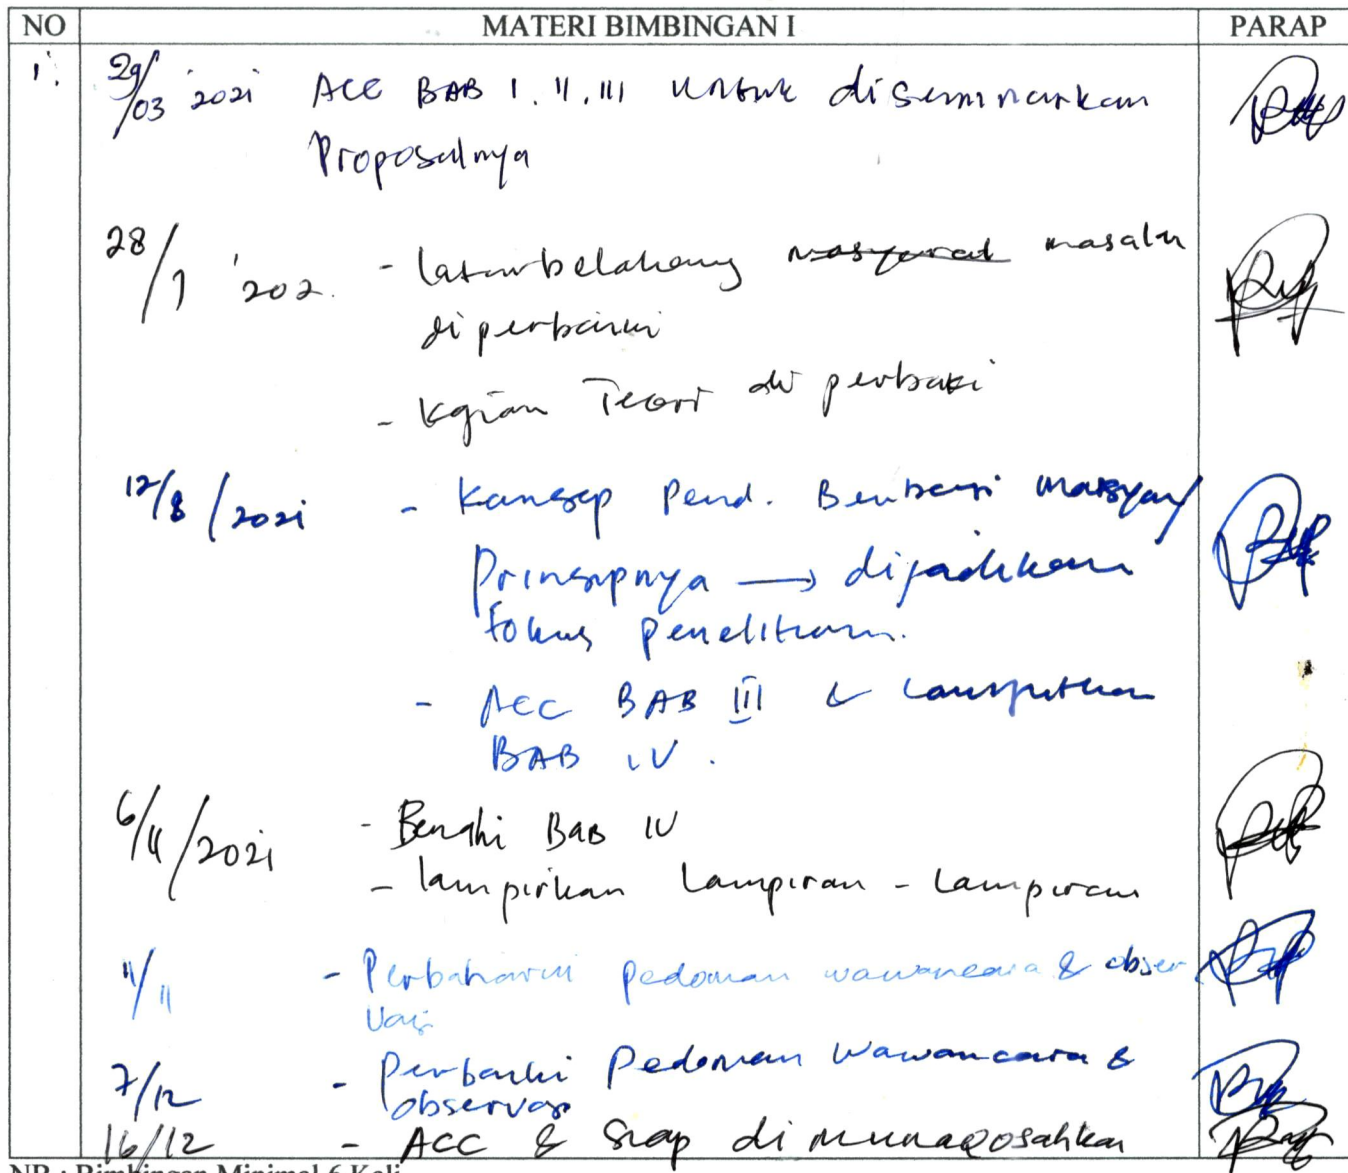 NO MATERI BIMBINGAN I PARAP
1. 29/03 2021 ACC BAB I. II. III untuk diseminarkan
Proposalnya
28/7 '202. - latarbelakang masyarat masalah
diperbarui
- Kajian Teori di perbaiki
12/8/2021 - Konsep Pend. Berbasis masyar/
Prinsipnya → dijadikan
fokus penelitian.
- ACC BAB III & lanjutkan
BAB IV.
6/11/2021 - Benahi Bab IV
- lampirkan Lampiran - Lampiran
11/11 - Perbaharui pedoman wawancara & obser
vasi
7/12 - Perbaiki Pedoman Wawancara &
observasi
16/12 - ACC & Siap di munaqosahkan
NB : Bimbingan Minimal 6 Kali